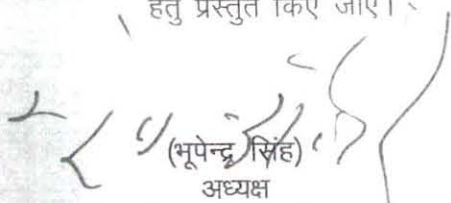 हेतु प्रस्तुत किए जाएं।
(भूपेन्द्र सिंह)
अध्यक्ष